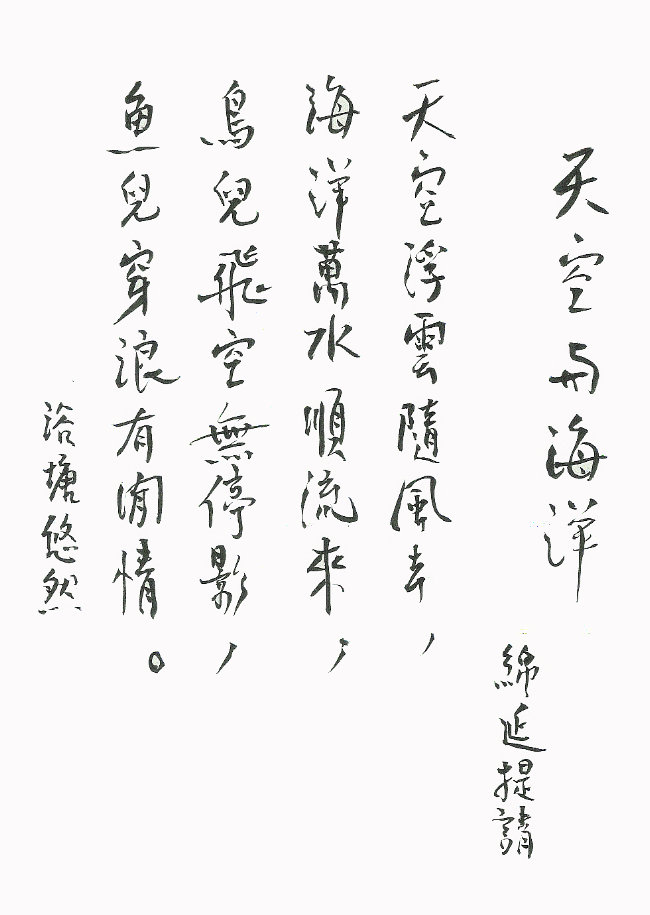 天空与海洋
綿延提請
天空浮雲隨風去，
海洋萬水順流來；
鳥兒飛空無停影，
魚兒穿浪有閒情。
浴塘悠然